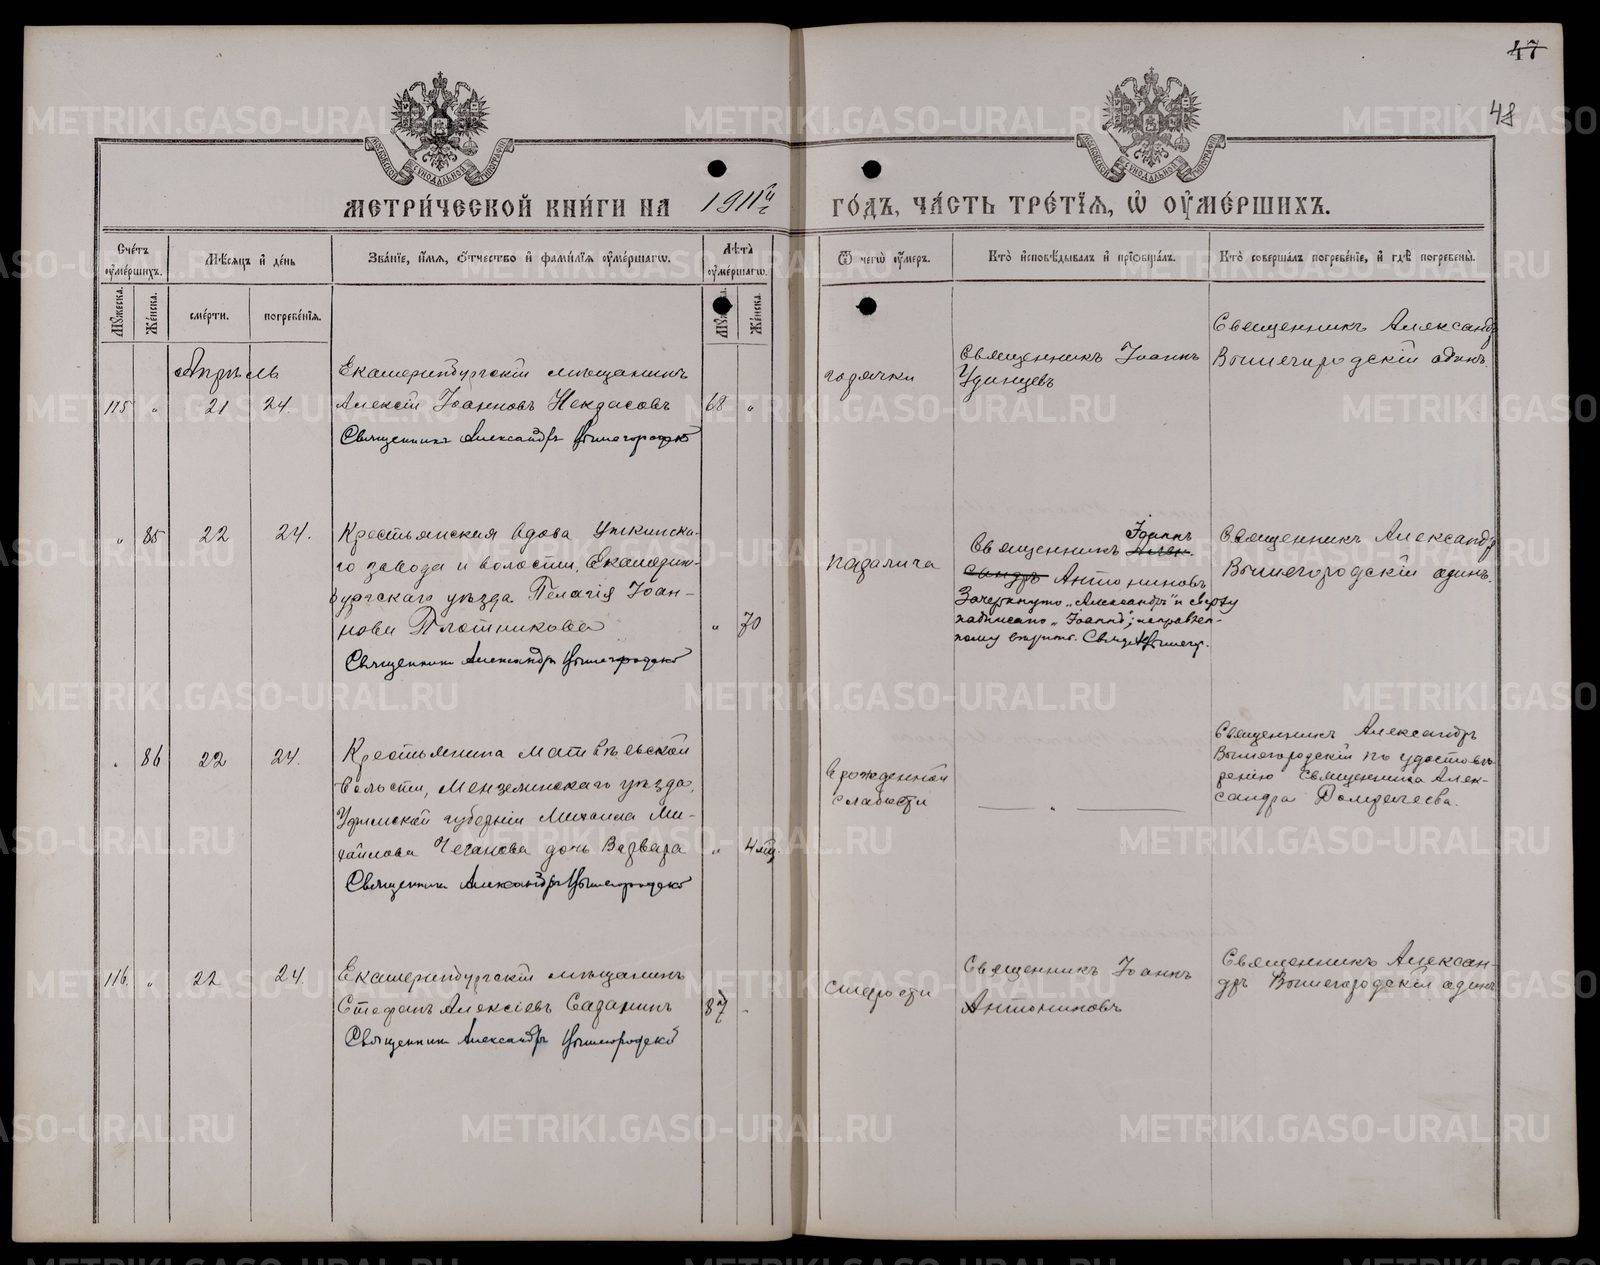 47
48
МЕТРИ́ЧЕСКОЙ КНИ́ГИ НА 1911й г
ГО́ДЪ, ЧА́СТЬ ТРЕ́ТІѦ, Ѡ ОУМЕ́РШИХЪ.
Сче́тъ оуме́ршихъ.
Мѣ́сяцъ и де́нь
Зва́ніе, и́мя, о́тчество и фами́лія оуме́ршагѡ.
Лѣ́та оуме́ршагѡ.
Ѿ чегѡ̀ оу́меръ.
Кто̀ исповѣ́дывалъ и пріобща́лъ.
Кто̀ соверша́лъ погребе́ніе, и гдѣ̀ погребены̀.
Му́жеска.
Же́нска.
сме́рти.
погребе́нія.
Му́жеска.
Же́нска.
Апрѣль
115 " 21 24.
Екатеринбургскій мѣщанинъ
Алексій Іоанновъ Некрасовъ
Священникъ Александръ Вышегородскій
68 "
горячки
Священникъ Іоаннъ
Удинцевъ
Священникъ Александръ
Вышегородскій одинъ.
" 85 22 24.
Крестьянская вдова Уткинска-
го завода и волости, Екатерин-
бургскаго уѣзда Пелагія Іоан-
нова Плотникова
Священникъ Александръ Вышегородскій
" 70
паралича
Іоаннъ
Священникъ Алек-
сандръ Антониновъ
Зачеркнуто „Александръ" и сверху
надписано „Іоаннъ"; исправлен-
ному вѣрить. Свящ. А. Вышегор.
Священникъ Александръ
Вышегородскій одинъ.
" 86 22 24.
Крестьянина Матвѣевской
волости, Мензелинскаго уѣзда,
Уфимской губерніи Михаила Ми-
хайлова Чеганова дочь Варвара
Священникъ Александръ Вышегородскій
" 4 мѣс.
врожденной
слабости
— " —
Священникъ Александръ
Вышегородскій по удостовѣ-
ренію Священника Алек-
сандра
116. " 22 24.
Екатеринбургскій мѣщанинъ
Стефанъ Алексіевъ Сазанинъ
Священникъ Александръ Вышегородскій
87 -
старости
Священникъ Іоаннъ
Антониновъ
Священникъ Алексан-
дръ Вышегородскій одинъ
METRIKI.GASO-URAL.RU